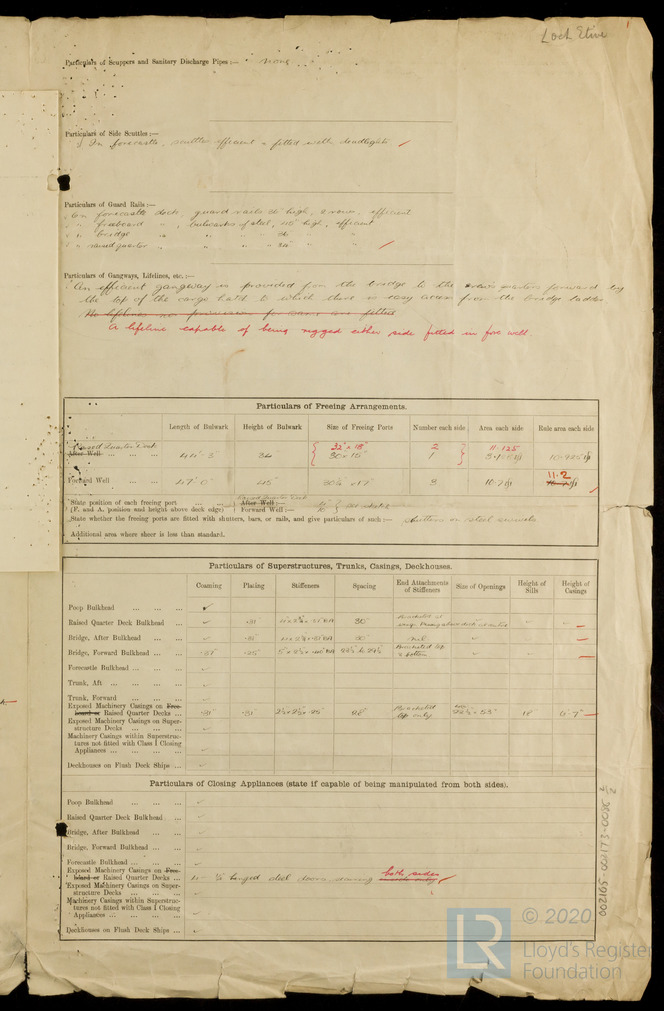 Loch Etive
Particulars of Scuppers and Sanitary Discharge Pipes :— none
Particulars of Side Scuttles :—
In forecastle, scuttles efficient & fitted with deadlights
Particulars of Guard Rails :—
On forecastle deck, guard rails 36" high, 2 rows, efficient
" freeboard " , bulwarks of steel, 45" high, efficient
" bridge " " " " 36 " "
" raised quarter " " " " "
Particulars of Gangways, Lifelines, etc. :—
An efficient gangway is provided from the bridge to the crew's quarters forward by
the top of the cargo hatch to which there is easy access from the bridge ladder
No lifelines nor provision for same are fitted
A lifeline capable of being rigged either side fitted in fore well
Particulars of Freeing Arrangements.
Length of Bulwark Height of Bulwark Size of Freeing Ports Number each side Area each side Rule area each side
Raised Quarter Deck 32" × 18" 2 11.125
After Well ... ... ... 44' 3" 34 30 × 15" 1
11.2
Forward Well ... ... 47' 0" 45" 3 10.7
State position of each freeing port ... ... Raised Quarter Deck After Well :—
(F. and A. position and height above deck edge) Forward Well :—
State whether the freeing ports are fitted with shutters, bars, or rails, and give particulars of such :— shutters
Additional area where sheer is less than standard.
Particulars of Superstructures, Trunks, Casings, Deckhouses.
Coaming Plating Stiffeners Spacing End Attachments of Stiffeners Size of Openings Height of Sills Height of Casings
Poop Bulkhead ... ... ...
Raised Quarter Deck Bulkhead ... .31" 30"
Bridge, After Bulkhead ... ... .31" 30" nil
Bridge, Forward Bulkhead ... ... Bracketed top & bottom
Forecastle Bulkhead ... ... ...
Trunk, Aft ... ... ...
Trunk, Forward ... ... ...
Exposed Machinery Casings on Free-
board or Raised Quarter Decks ... .31" .31" 28" Bracketed top only 18" 6'-7"
Exposed Machinery Casings on Super-
structure Decks ... ...
Machinery Casings within Superstruc-
tures not fitted with Class I Closing
Appliances ... ... ...
Deckhouses on Flush Deck Ships ...
Particulars of Closing Appliances (state if capable of being manipulated from both sides).
Poop Bulkhead ... ... ...
Raised Quarter Deck Bulkhead ...
Bridge, After Bulkhead ... ...
Bridge, Forward Bulkhead ... ...
Forecastle Bulkhead ... ... ...
Exposed Machinery Casings on Free-
board or Raised Quarter Decks ... hinged steel doors both sides
Exposed Machinery Casings on Super-
structure Decks ... ...
Machinery Casings within Superstruc-
tures not fitted with Class I Closing
Appliances ... ... ...
Deckhouses on Flush Deck Ships ...
002165-002173-0086 2/2
LR © 2020
Lloyd's Register
Foundation